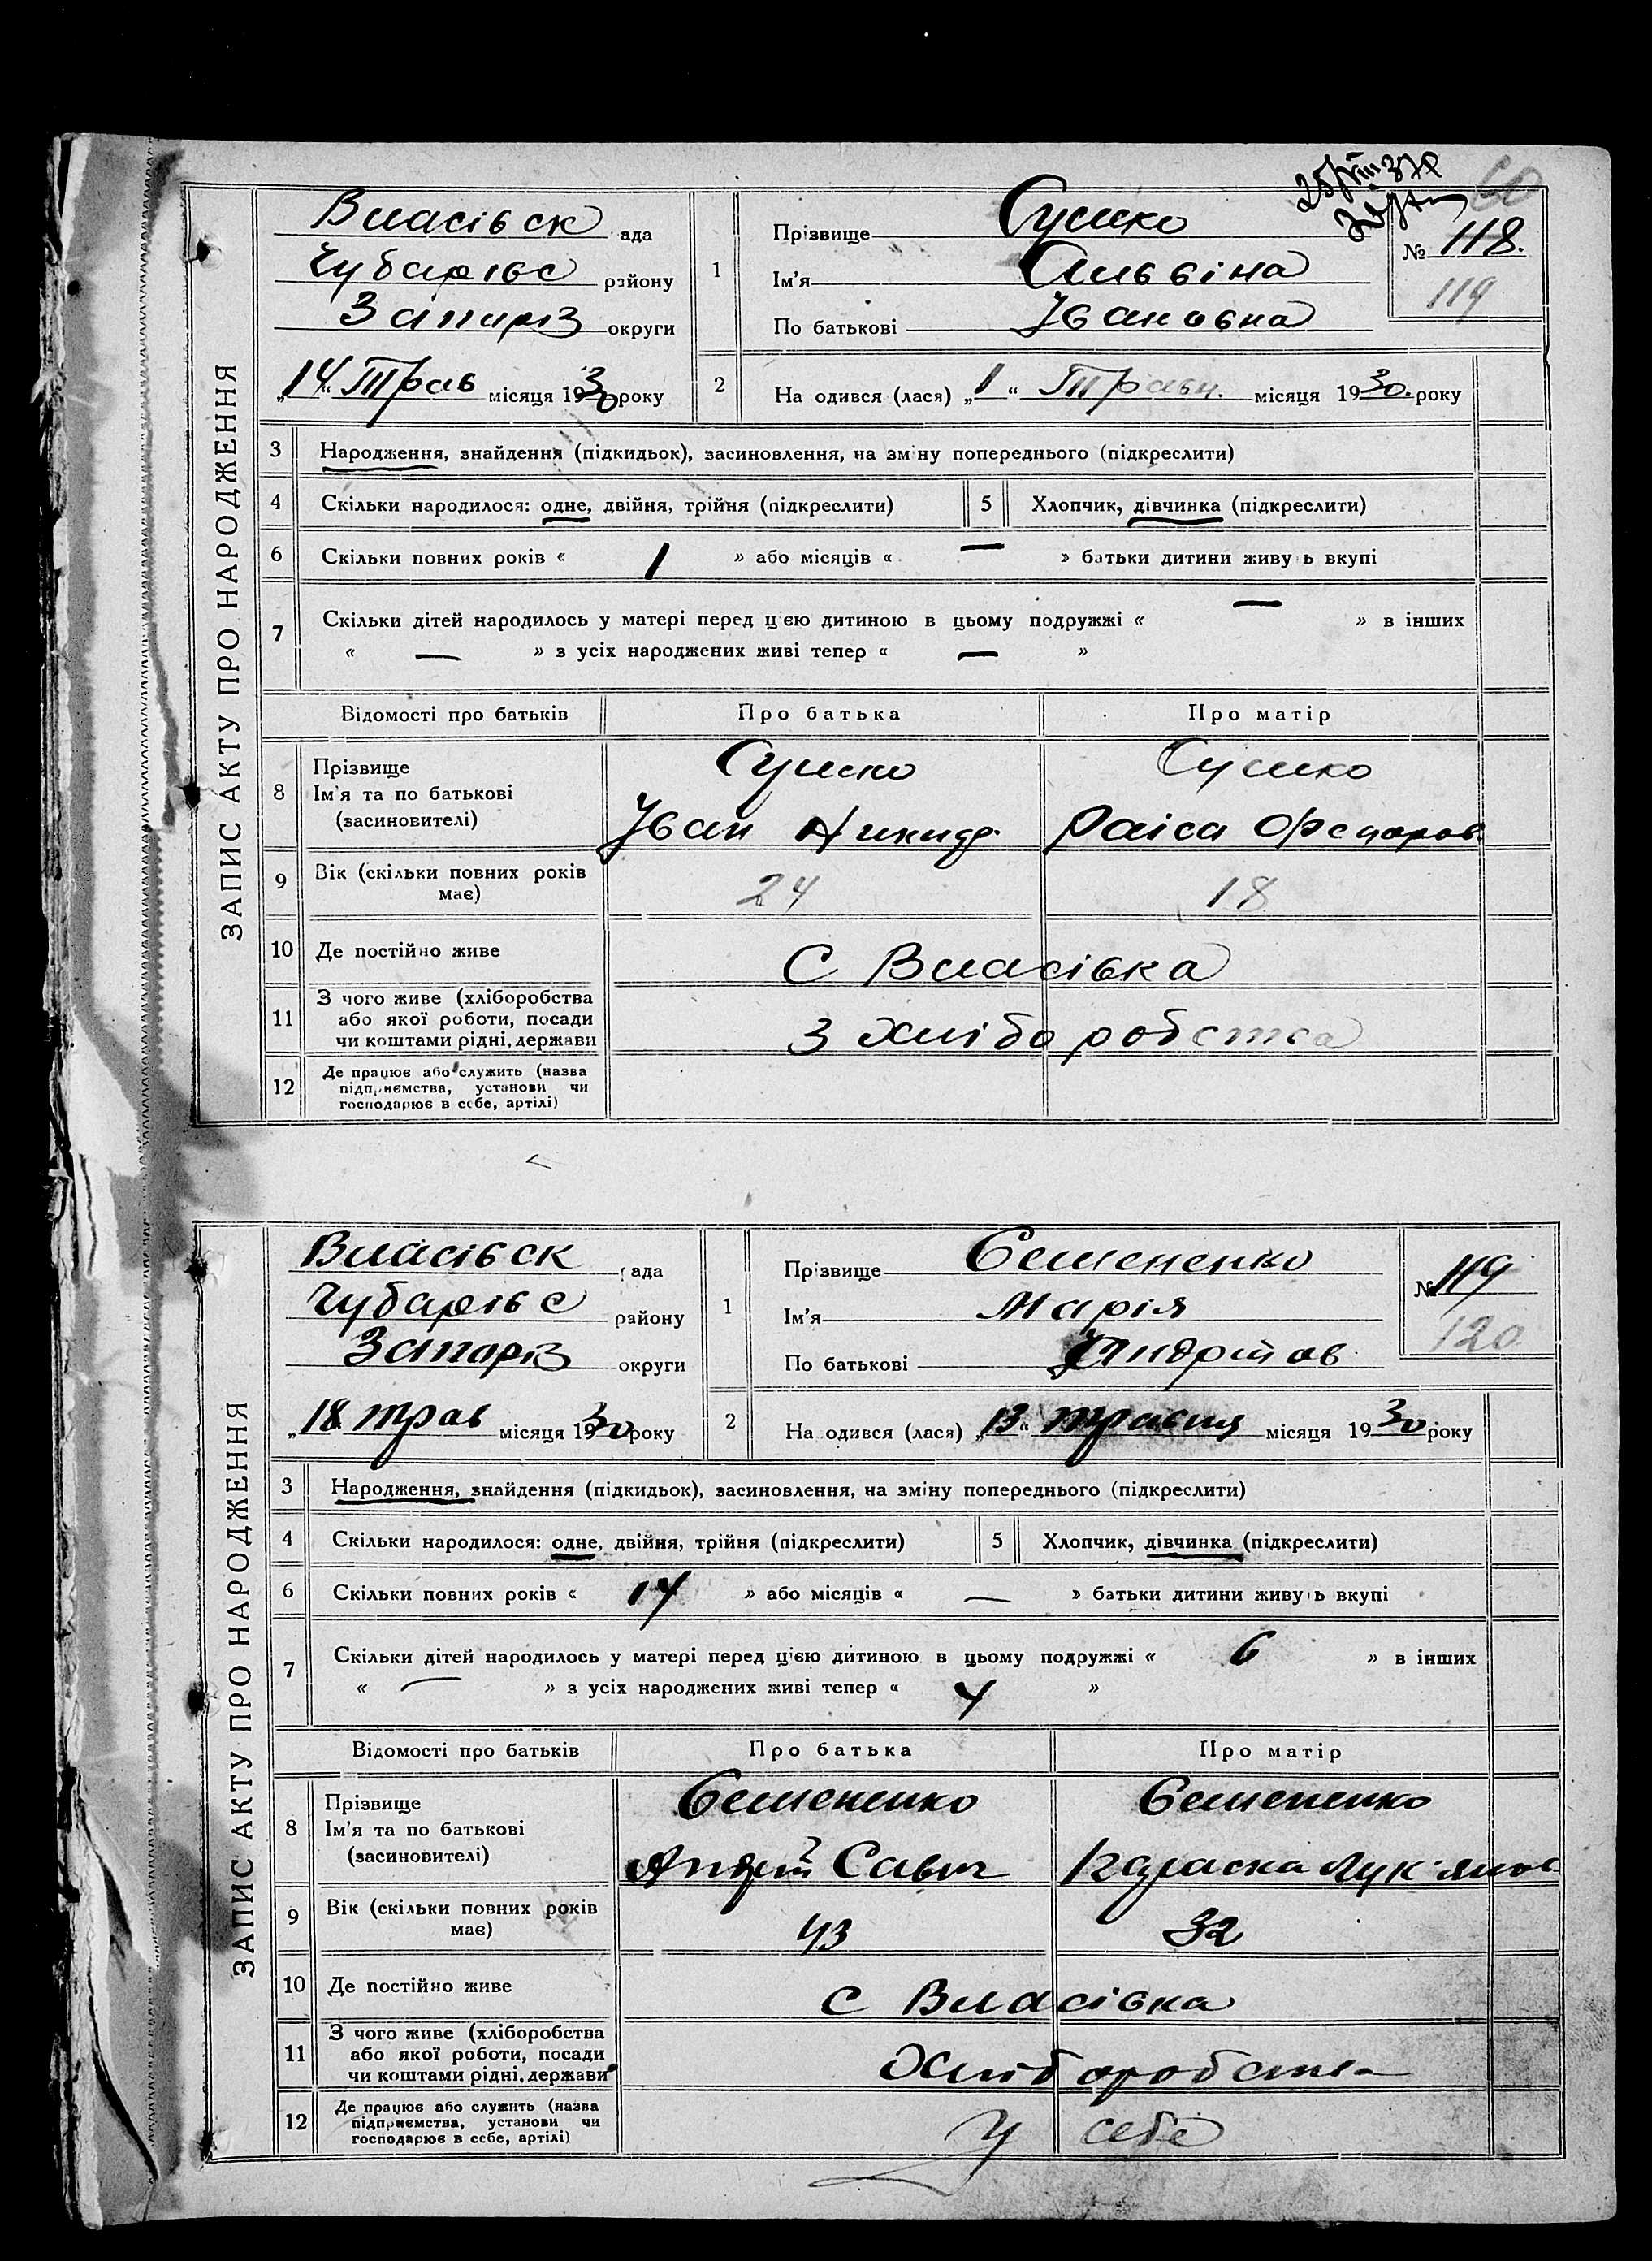 60
Власівск ада
Чубарівс району
Запоріз округи
„14“ Трав місяця 1930 року
1
Прізвище Сушко
Ім'я Альвіна
По батькові Івановна
№ 118.
119
2
На одився (лася) „1“ Травн. місяця 1930. року
ЗАПИС АКТУ ПРО НАРОДЖЕННЯ
3 Народження, знайдення (підкидьок), засиновлення, на зміну попереднього (підкреслити)
4 Скільки народилося: одне, двійня, трійня (підкреслити) 5 Хлопчик, дівчинка (підкреслити)
6 Скільки повних років « 1 » або місяців « — » батьки дитини живу ь вкупі
7 Скільки дітей народилось у матері перед цією дитиною в цьому подружжі « — » в інших
« — » з усіх народжених живі тепер « — »
Відомості про батьків Про батька Про матір
8 Прізвище Сушко Сушко
Ім'я та по батькові Іван Никидр. Раіса Федоров.
(засиновителі)
9 Вік (скільки повних років 24 18
має)
10 Де постійно живе С Власівка
11 З чого живе (хліборобства
або якої роботи, посади З хліборобства
чи коштами рідні, держави
12 Де працює або служить (назва
підприємства, установи чи
господарює в себе, артілі)
Власівск ада
Чубарівс району
Запоріз округи
„18 трав місяця 1930 року
1
Прізвище Семененко
Ім'я Марія
По батькові Андріїов
№ 119
120
2
На одився (лася) „13“ травця місяця 1930 року
ЗАПИС АКТУ ПРО НАРОДЖЕННЯ
3 Народження, знайдення (підкидьок), засиновлення, на зміну попереднього (підкреслити)
4 Скільки народилося: одне, двійня, трійня (підкреслити) 5 Хлопчик, дівчинка (підкреслити)
6 Скільки повних років « 14 » або місяців « — » батьки дитини живу ь вкупі
7 Скільки дітей народилось у матері перед цією дитиною в цьому подружжі « 6 » в інших
« — » з усіх народжених живі тепер « 4 »
Відомості про батьків Про батька Про матір
8 Прізвище Семененко Семененко
Ім'я та по батькові Андрій Савич Лук'янов
(засиновителі)
9 Вік (скільки повних років 43 32
має)
10 Де постійно живе С Власівка
11 З чого живе (хліборобства
або якої роботи, посади Хліборобства
чи коштами рідні, держави
12 Де працює або служить (назва
підприємства, установи чи У себе
господарює в себе, артілі)